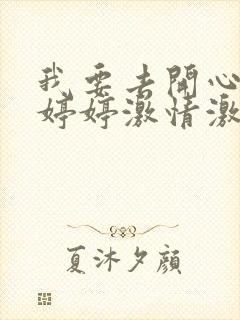 我要去開心
婷婷激情激
夏沐夕顏